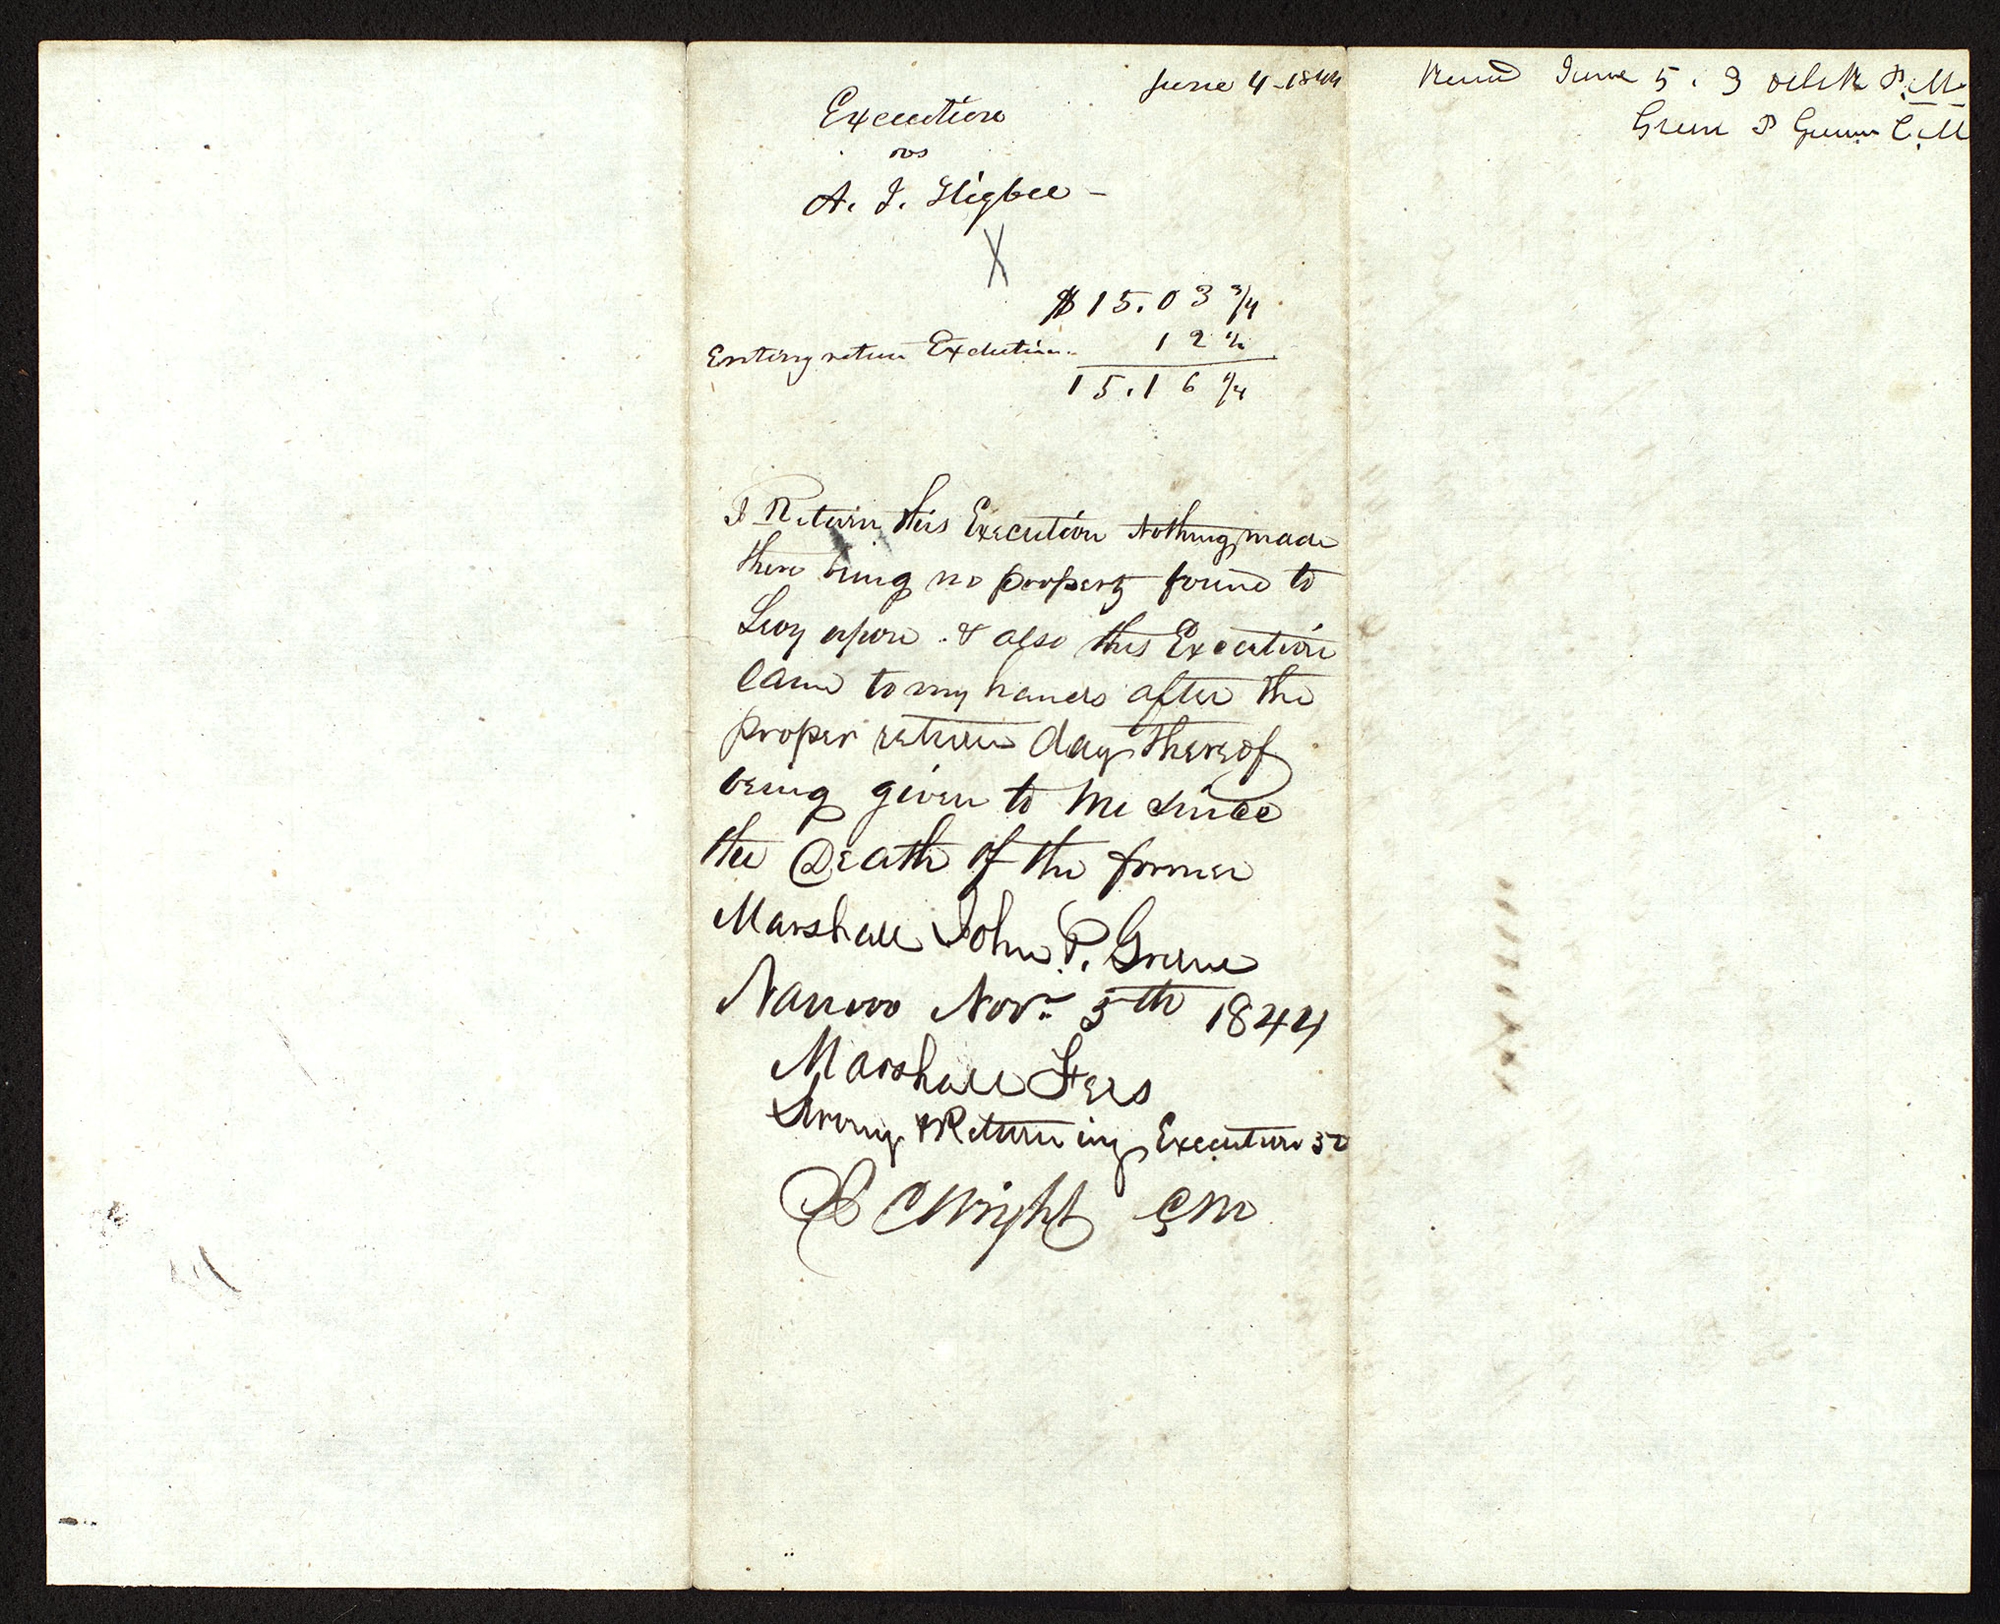 June 4 - 1844
Execution
vs
A. J. Higbee -
X
$15.03 3/4
Entering return Execution. 12 1/2
15.16 1/4
I Return this Execution Nothing made
there being no property found to
Levy upon. & also this Execution
Came to my hands after the
proper return day thereof
being given to me Since
the Death of the former
Marshall John P. Greene
Nauvoo Novr. 5th 1844
Marshall Fees
Serving & Returning Execution 50
C Wright C M
June 5. 3 oclk P. M.
P Green C. M